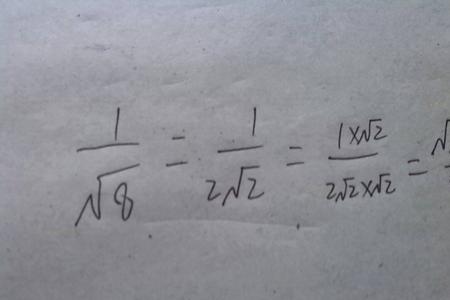 1/√8 = 1/2√2 = 1×√2/2√2×√2 = √